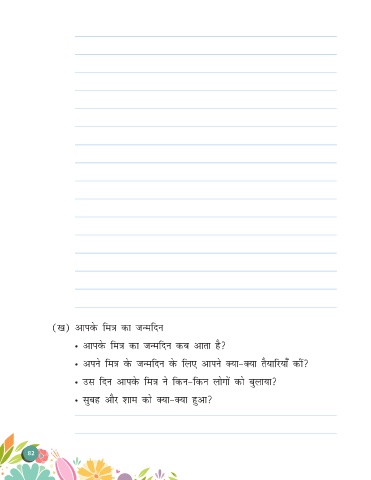 (ख) आपके मित्र का जन्मदिन
• आपके मित्र का जन्मदिन कब आता है?
• अपने मित्र के जन्मदिन के लिए आपने क्या-क्या तैयारियाँ कीं?
• उस दिन आपके मित्र ने किन-किन लोगों को बुलाया?
• सुबह और शाम को क्या-क्या हुआ?
82